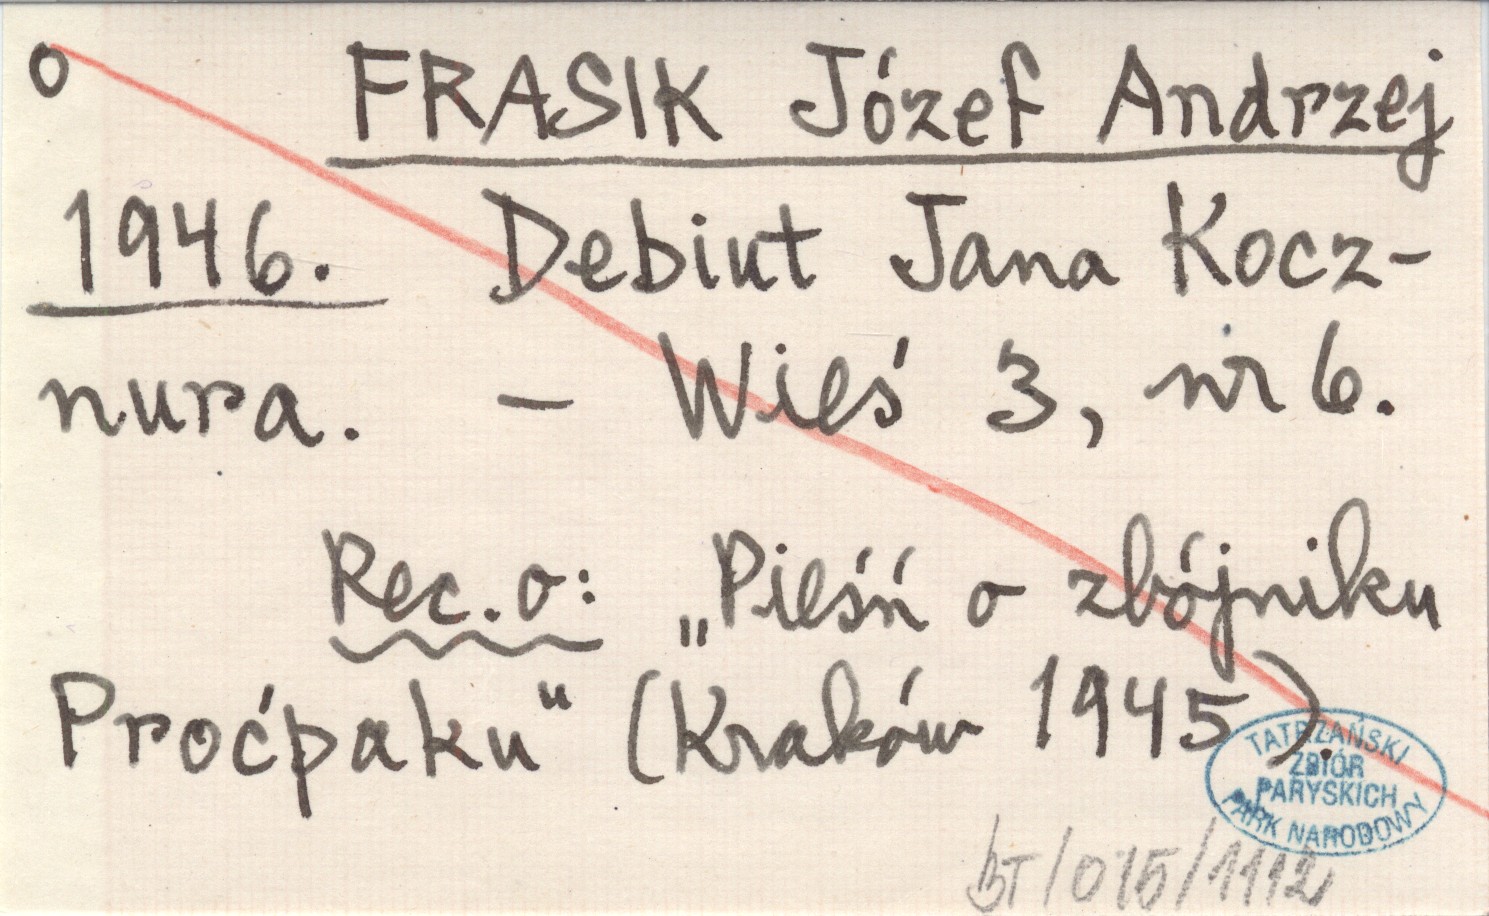 o FRASIK Józef Andrzej
1946. Debiut Jana Kocz-
nura. – Wieś 3, nr 6.
Rec. o: „Pieśń o zbójniku
Proćpaku" (Kraków 1945).
TATRZAŃSKI
ZBIÓR
PARYSKICH
PARK NARODOWY
BT/015/1112